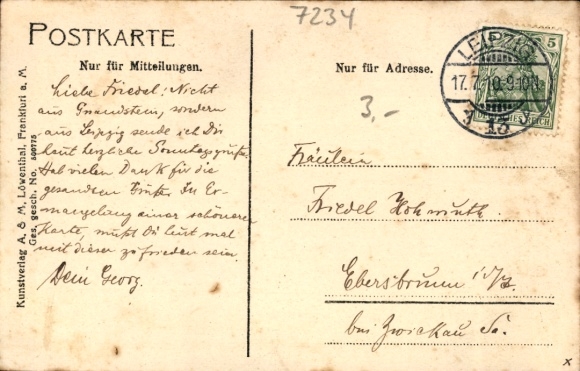 7234
POSTKARTE
Nur für Mitteilungen.
Nur für Adresse.
3,-
LEIPZIG
17.7.10.9-10V.
5
DEUTSCHES REICH
Liebe Friedel! Nicht
aus Gnandstein, sondern
aus Leipzig sende ich Dir
heut herzliche Sonntagsgrüße.
Hab vielen Dank für die
gesandten Grüße. In Er-
mangelung einer schöneren
Karte, mußt Du heut mal
mit dieser zufrieden sein.
Dein Georg.
Fräulein
Friedel
Ebersbrunn i/S.
bei Zwickau Sa.
Kunstverlag A. & M. Löwenthal, Frankfurt a. M.
Ges. gesch. No.
x